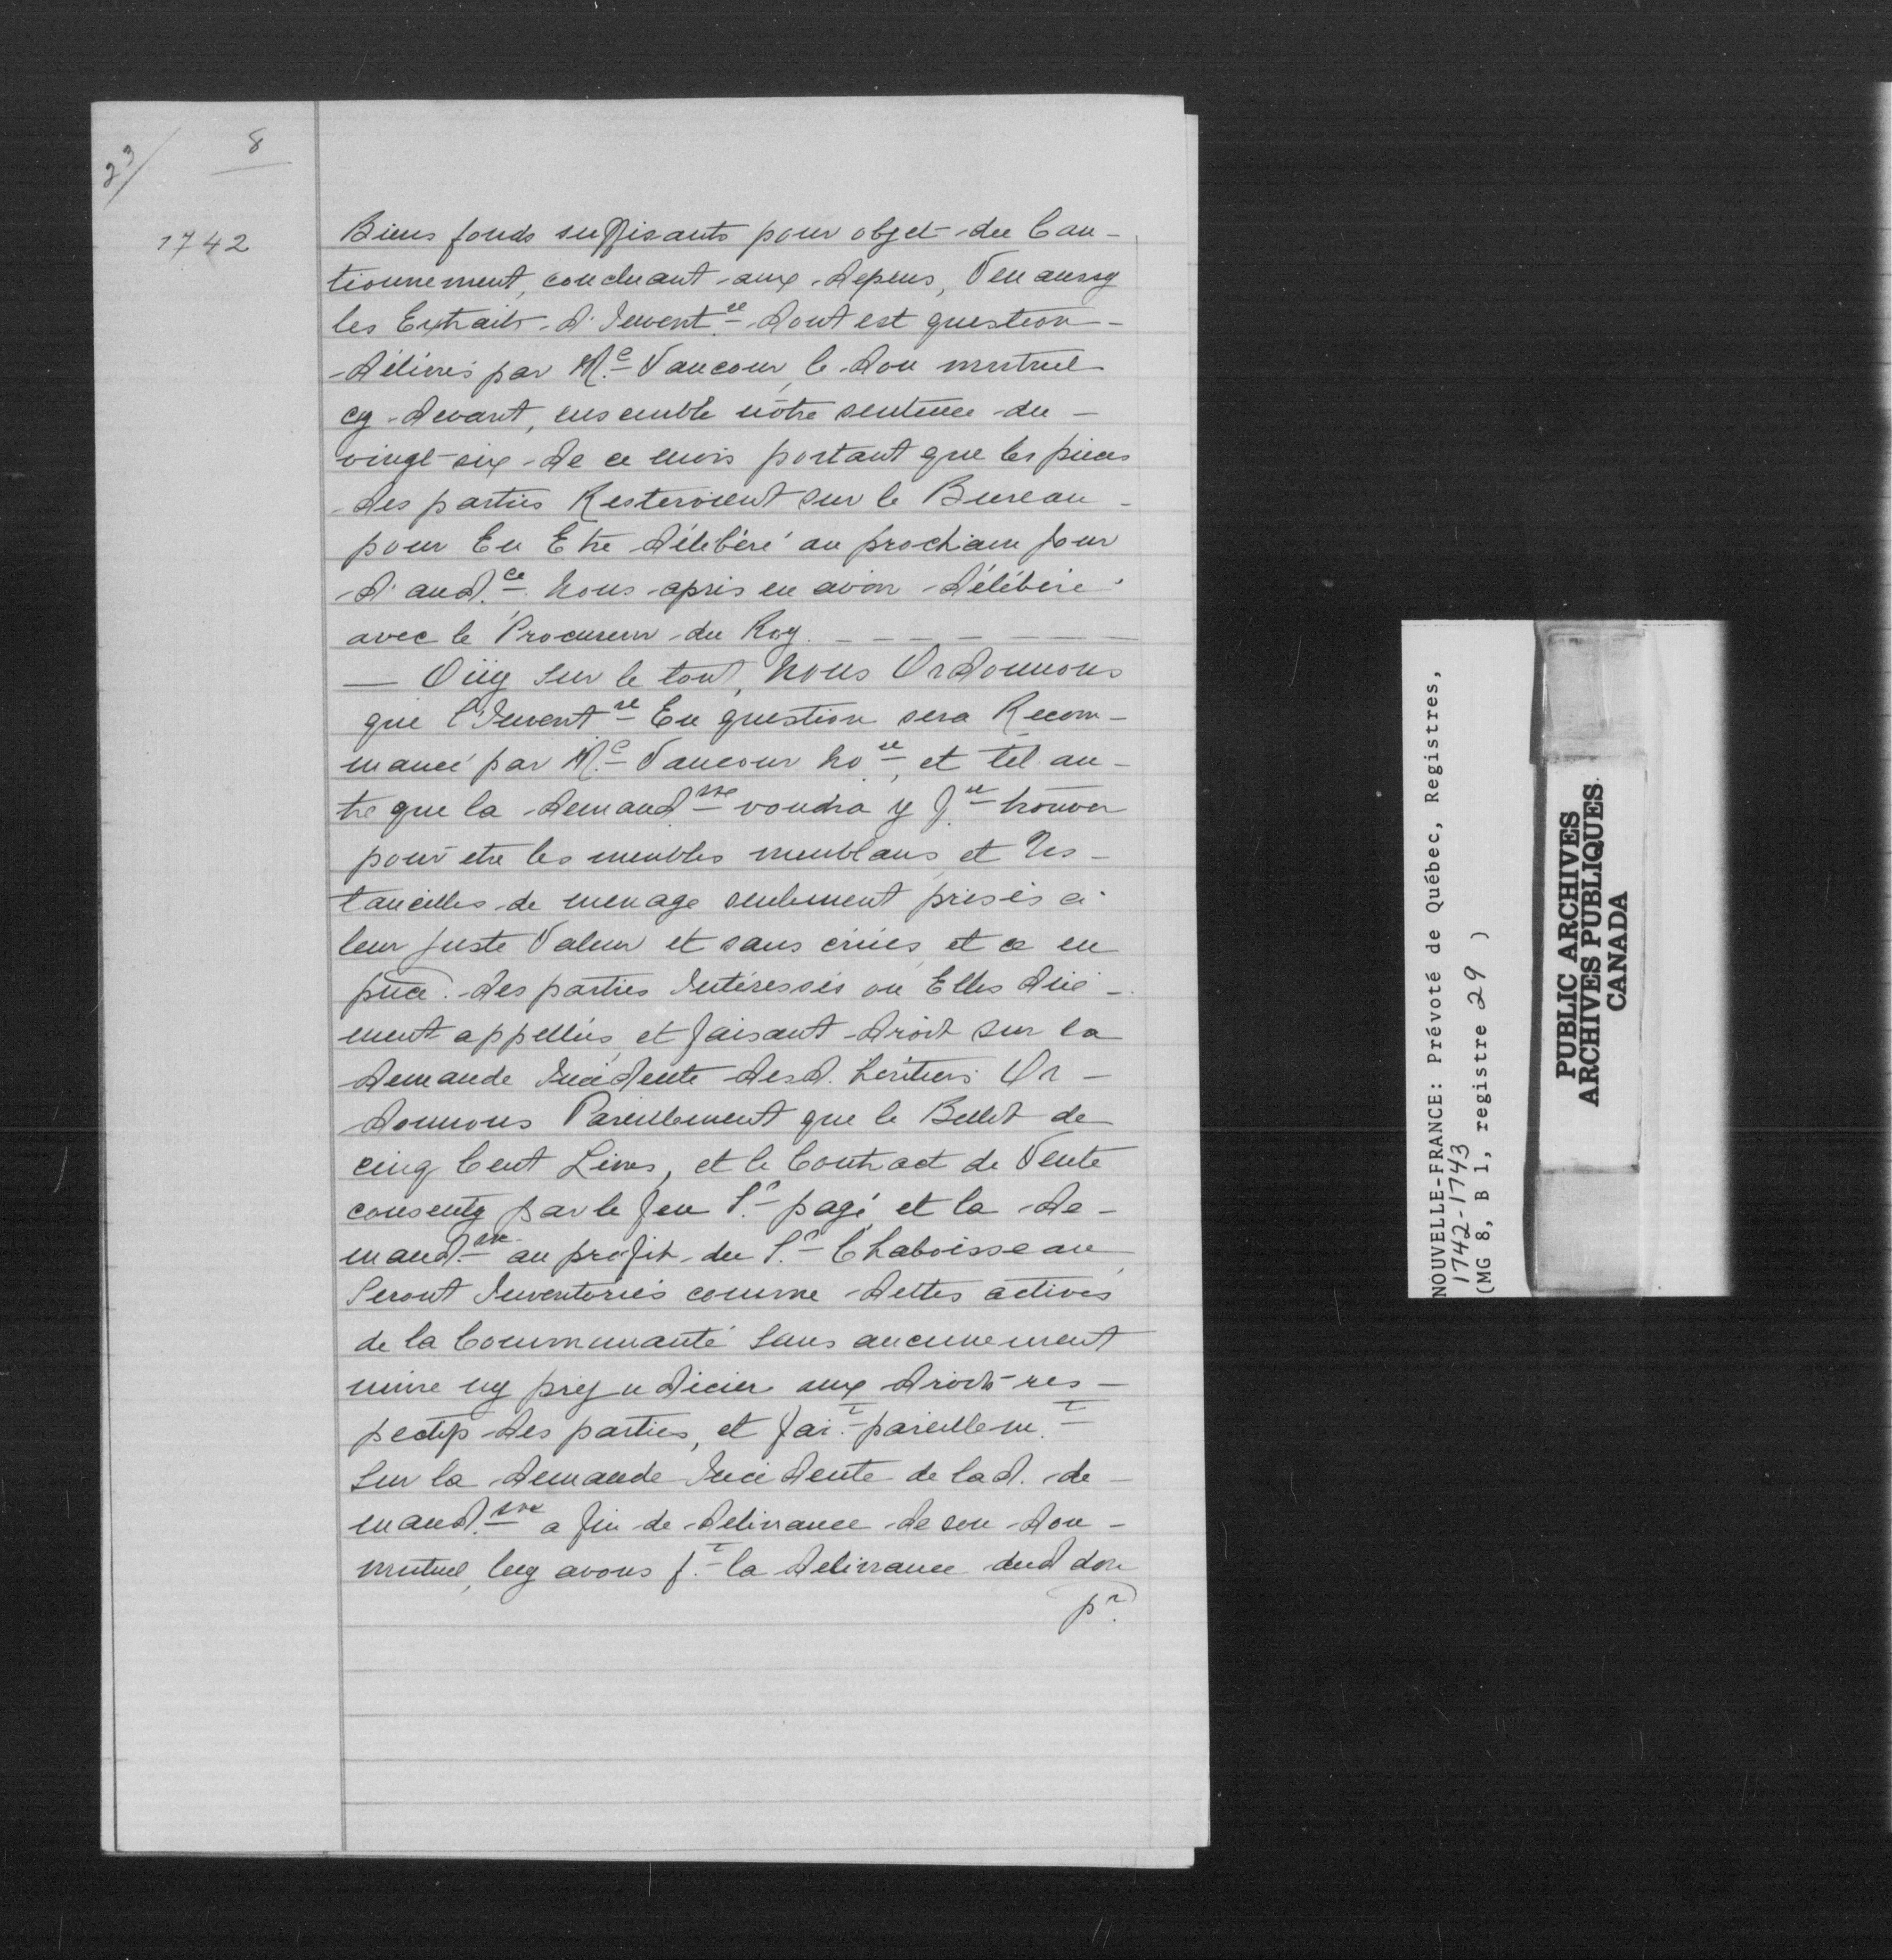 23/
8
1742
Biens fonds suffisants pour objet du Cau-
tionnement, concluant aux depens, Veu aussy
les Extraits d'Invent.re dont est question
délivrés par Me Vancour, le don mutuel
cy devant, ensemble nôtre sentence du
vingt six de ce mois portant que les pieces
des parties Resteroient sur le Bureau
pour En Etre délibéré au prochain jour
d'aud.ce Nous après en avoir délibéré
avec le Procureur du Roy.
— Oüy sur le tout, Nous Ordonnons
que l'Invent.re En question sera Recom-
mancé par Me Vancour no.re, et tel au-
tre que la demand.sse voudra y f.re trouver
pour etre les meubles meublans, et Us-
tancilles de menage seulement prisés à
leur juste Valeur et sans criées, et ce en
pnce. des parties Intéressés ou Elles düe-
ment appellées, et faisant droit sur la
demande Incidente desd. héritiers Or-
donnons Pareillement que le Billet de
cinq Cent Livres, et le Contract de Vente
consenty par le feu Sr. pagé et la de-
mand.sse au profit du Sr. Chaboisseau,
Seront Inventoriés comme dettes actives
de la Communauté Sans aucunement
nuire ny prejudicier aux droits res-
pectifs des parties, et fai.t pareillem.t
Sur la demande Incidente de lad. de-
mand.sse a fin de delivrance de son don
mutuel, luy avons f.t la delivrance dud don
pr.
NOUVELLE-FRANCE: Prévoté de Québec, Registres,
1742-1743
(MG 8, B 1, registre 29 )
PUBLIC ARCHIVES
ARCHIVES PUBLIQUES
CANADA